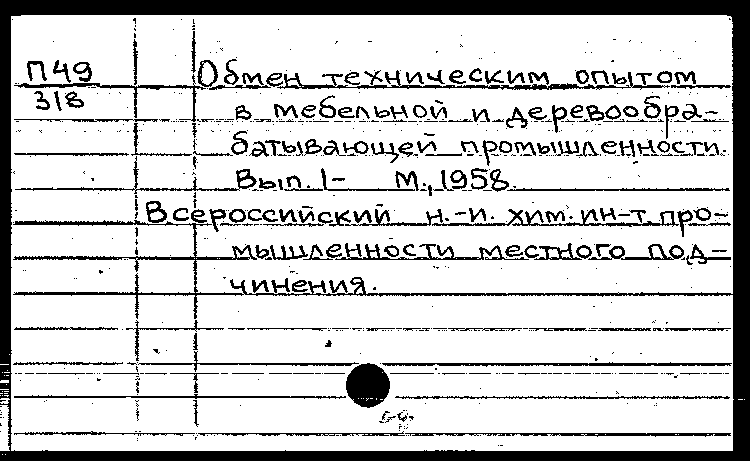 П49
318
Обмен техническим опытом
в мебельной и деревообра-
батывающей промышленности.
Вып. 1- М., 1958.
Всероссийский н.-и. хим. ин-т про-
мышленности местного под-
чинения.